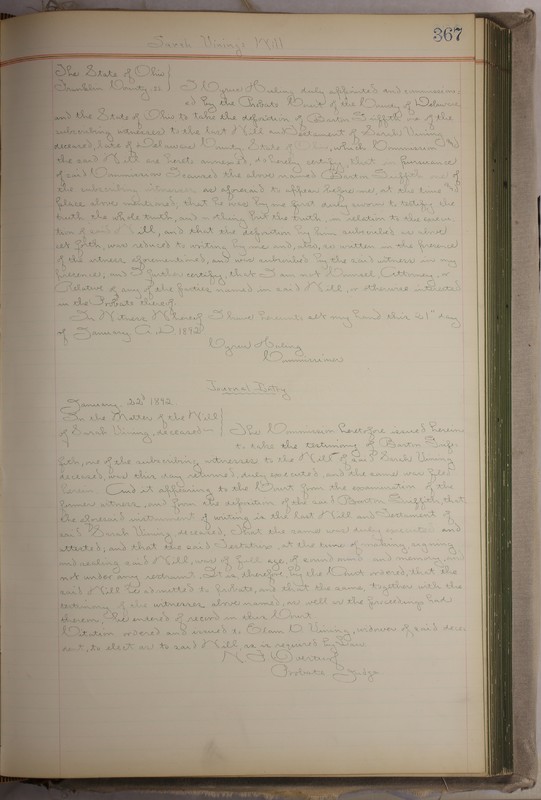 367
Sarah Vining's Will
The State of Ohio
Franklin County ss
I Byron duly appointed and commission-
ed by the Probate Court of the County of Delaware
and the State of Ohio to take the deposition of Burton Griffith one of the
subscribing witnesses to the last Will and Testament of Sarah Vining
deceased, late of Delaware County, State of Ohio, which Commission &
the said Will are hereto annexed, do hereby certify, that in pursuance
of said Commission I caused the above named Burton Griffith one of
the subscribing witnesses as aforesaid to appear before me, at the time &
place above mentioned; that he was by me first duly sworn to testify the
truth the whole truth, and nothing but the truth in relation to the execu-
tion of said Will, and that the deposition by him subscribed as above
set forth, was reduced to writing by me and, also, so written in the presence
of the witness aforementioned, and was subscribed by the said witness in my
presence, and I further certify, that I am not Counsel, Attorney, or
Relative of any of the parties named in said Will, or otherwise interested
in the Probate thereof.
In Witness Whereof I have hereunto set my hand this 21st day
of January A.D. 1892
Byron
Commissioner
Journal Entry
January 22d 1892
In the Matter of the Will
of Sarah Vining, deceased
The Commission heretofore issued herein
to take the testimony of Burton Grif-
fith, one of the subscribing witnesses to the Will of said Sarah Vining
deceased, was this day returned, duly executed, and the same was filed
herein. And it appearing to the Court from the examination of the
former witness, and from the deposition of the said Burton Griffith, that
the aforesaid instrument of writing is the last Will and Testament of
said Sarah Vining deceased; that the same was duly executed and
attested; and that the said Testatrix, at the time of making, signing
and sealing said Will, was of full age, of sound mind and memory, and
not under any restraint. It is therefore by the Court ordered, that the
said Will be admitted to probate, and that the same, together with the
testimony of the witnesses above named, as well as the proceedings had
therein, be entered of record in this Court.
Citation ordered and issued to Vining, widower of said dece-
dent, to elect as to said Will, as is required by Law
Probate Judge